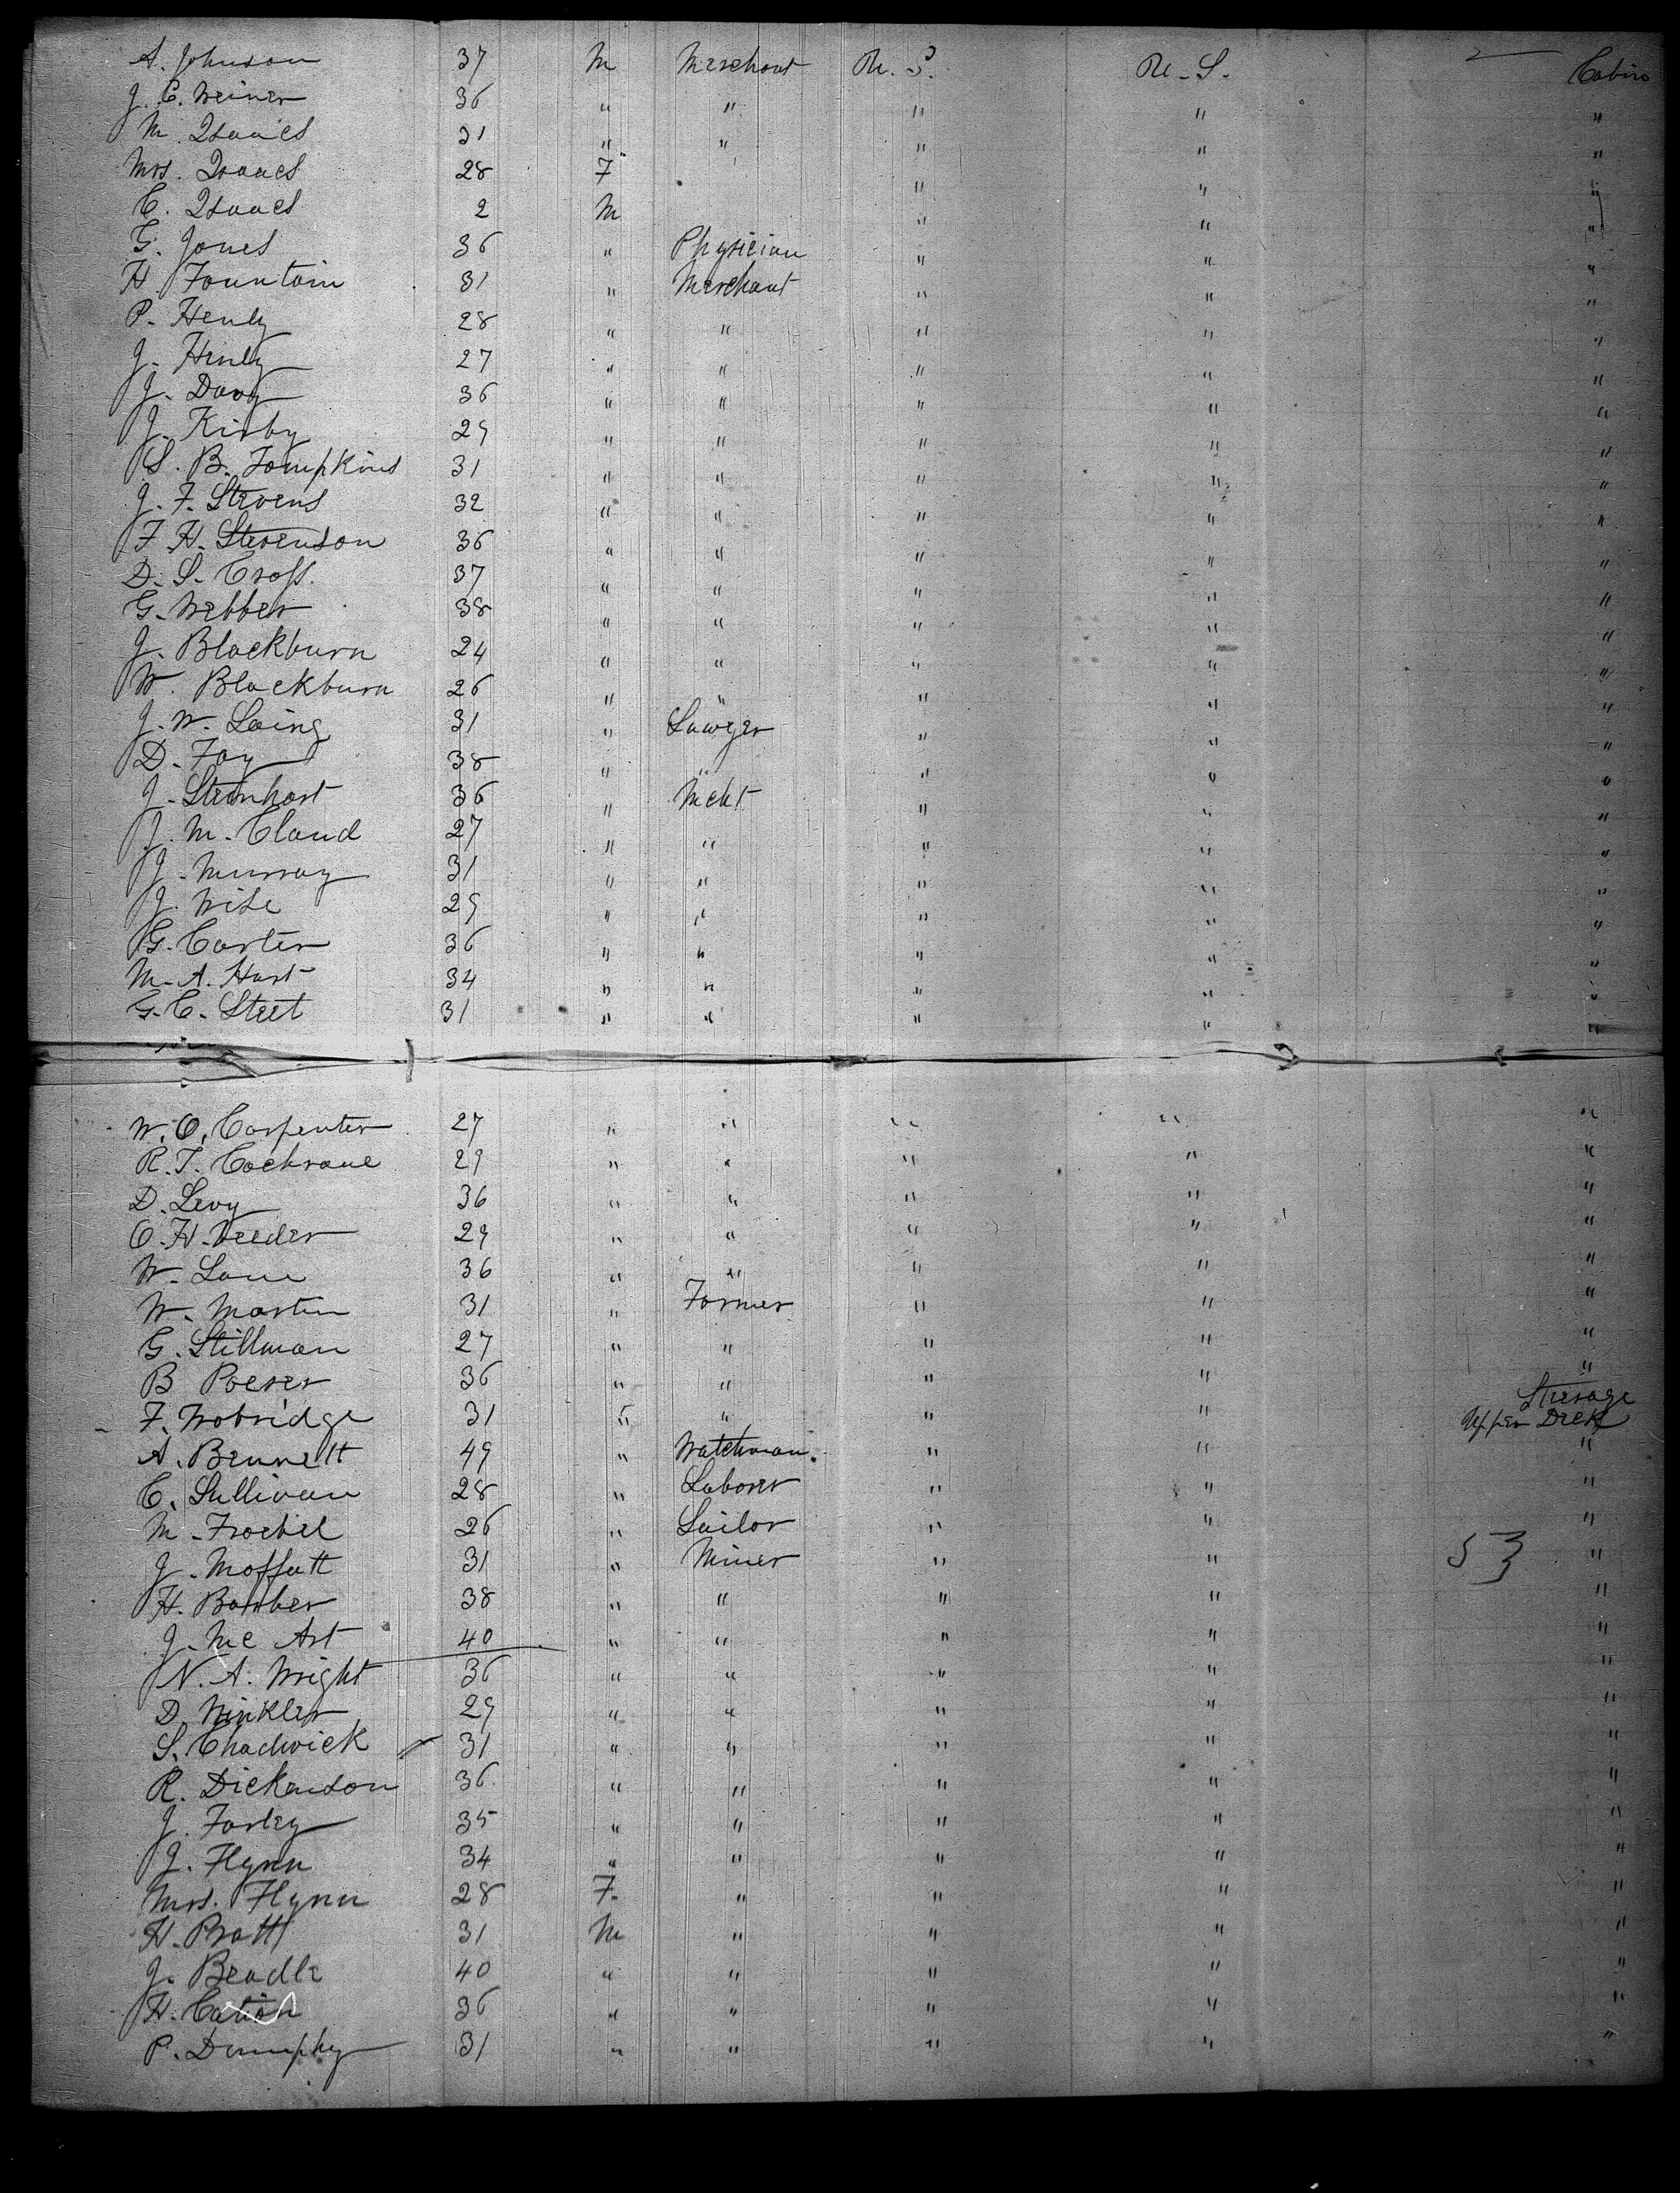 A. Johnson 37 M Merchant U. S. U. S. Cabin
J. C. Weiner 36 " " " " "
M. Isaacs 31 " " " " "
Mrs. Isaacs 28 F " " "
C. Isaacs 2 M " " "
G. Jones 36 " Physician " " "
H. Fountain 31 " Merchant " " "
P. Henly 28 " " " " "
J. Henly 27 " " " " "
J. Davy 36 " " " " "
J. Kirby 29 " " " " "
S. B. Tompkins 31 " " " " "
J. F. Stevens 32 " " " " "
F. H. Stevenson 36 " " " " "
D. S. Cross. 37 " " " " "
G. Webber 38 " " " " "
J. Blackburn 24 " " " " "
W. Blackburn 26 " " " " "
J. W. Laing 31 " Lawyer " " "
D. Fay 38 " " " " "
J. Steinhart 36 " Mcht " " "
J. M. Cloud 27 " " " " "
J. Murray 31 " " " " "
J. Wise 29 " " " " "
G. Carter 36 " " " " "
M. A. Hart 34 " " " " "
G. C. Steet 31 " " " " "
W. O. Carpenter 27 " " " " "
R. T. Cochrane 29 " " " " "
D. Levy 36 " " " " "
O. H. Veeder 29 " " " " "
W. Lane 36 " " " " "
W. Martin 31 " Farmer " " "
G. Stillman 27 " " " " "
B Poerer 36 " " " " "
F. Wobridge 31 " " " " Steerage Upper Deck
A. Bennett 49 " Watchman. " " "
C. Sullivan 28 " Laborer " " "
M. Froebel 26 " Sailor " " "
J. Moffatt 31 " Miner " " 53 "
H. Banber 38 " " " " "
J. Mc Art 40 " " " " "
N. A. Wright 36 " " " " "
D. Winkler 29 " " " " "
S. Chadwick 31 " " " " "
R. Dickenson 36 " " " " "
J. Farley 35 " " " " "
J. Flynn 34 " " " " "
Mrs. Flynn 28 F. " " " "
H. Pratt 31 M " " " "
J. Beadle 40 " " " " "
H. Caton 36 " " " " "
P. Dumphy 31 " " " " "